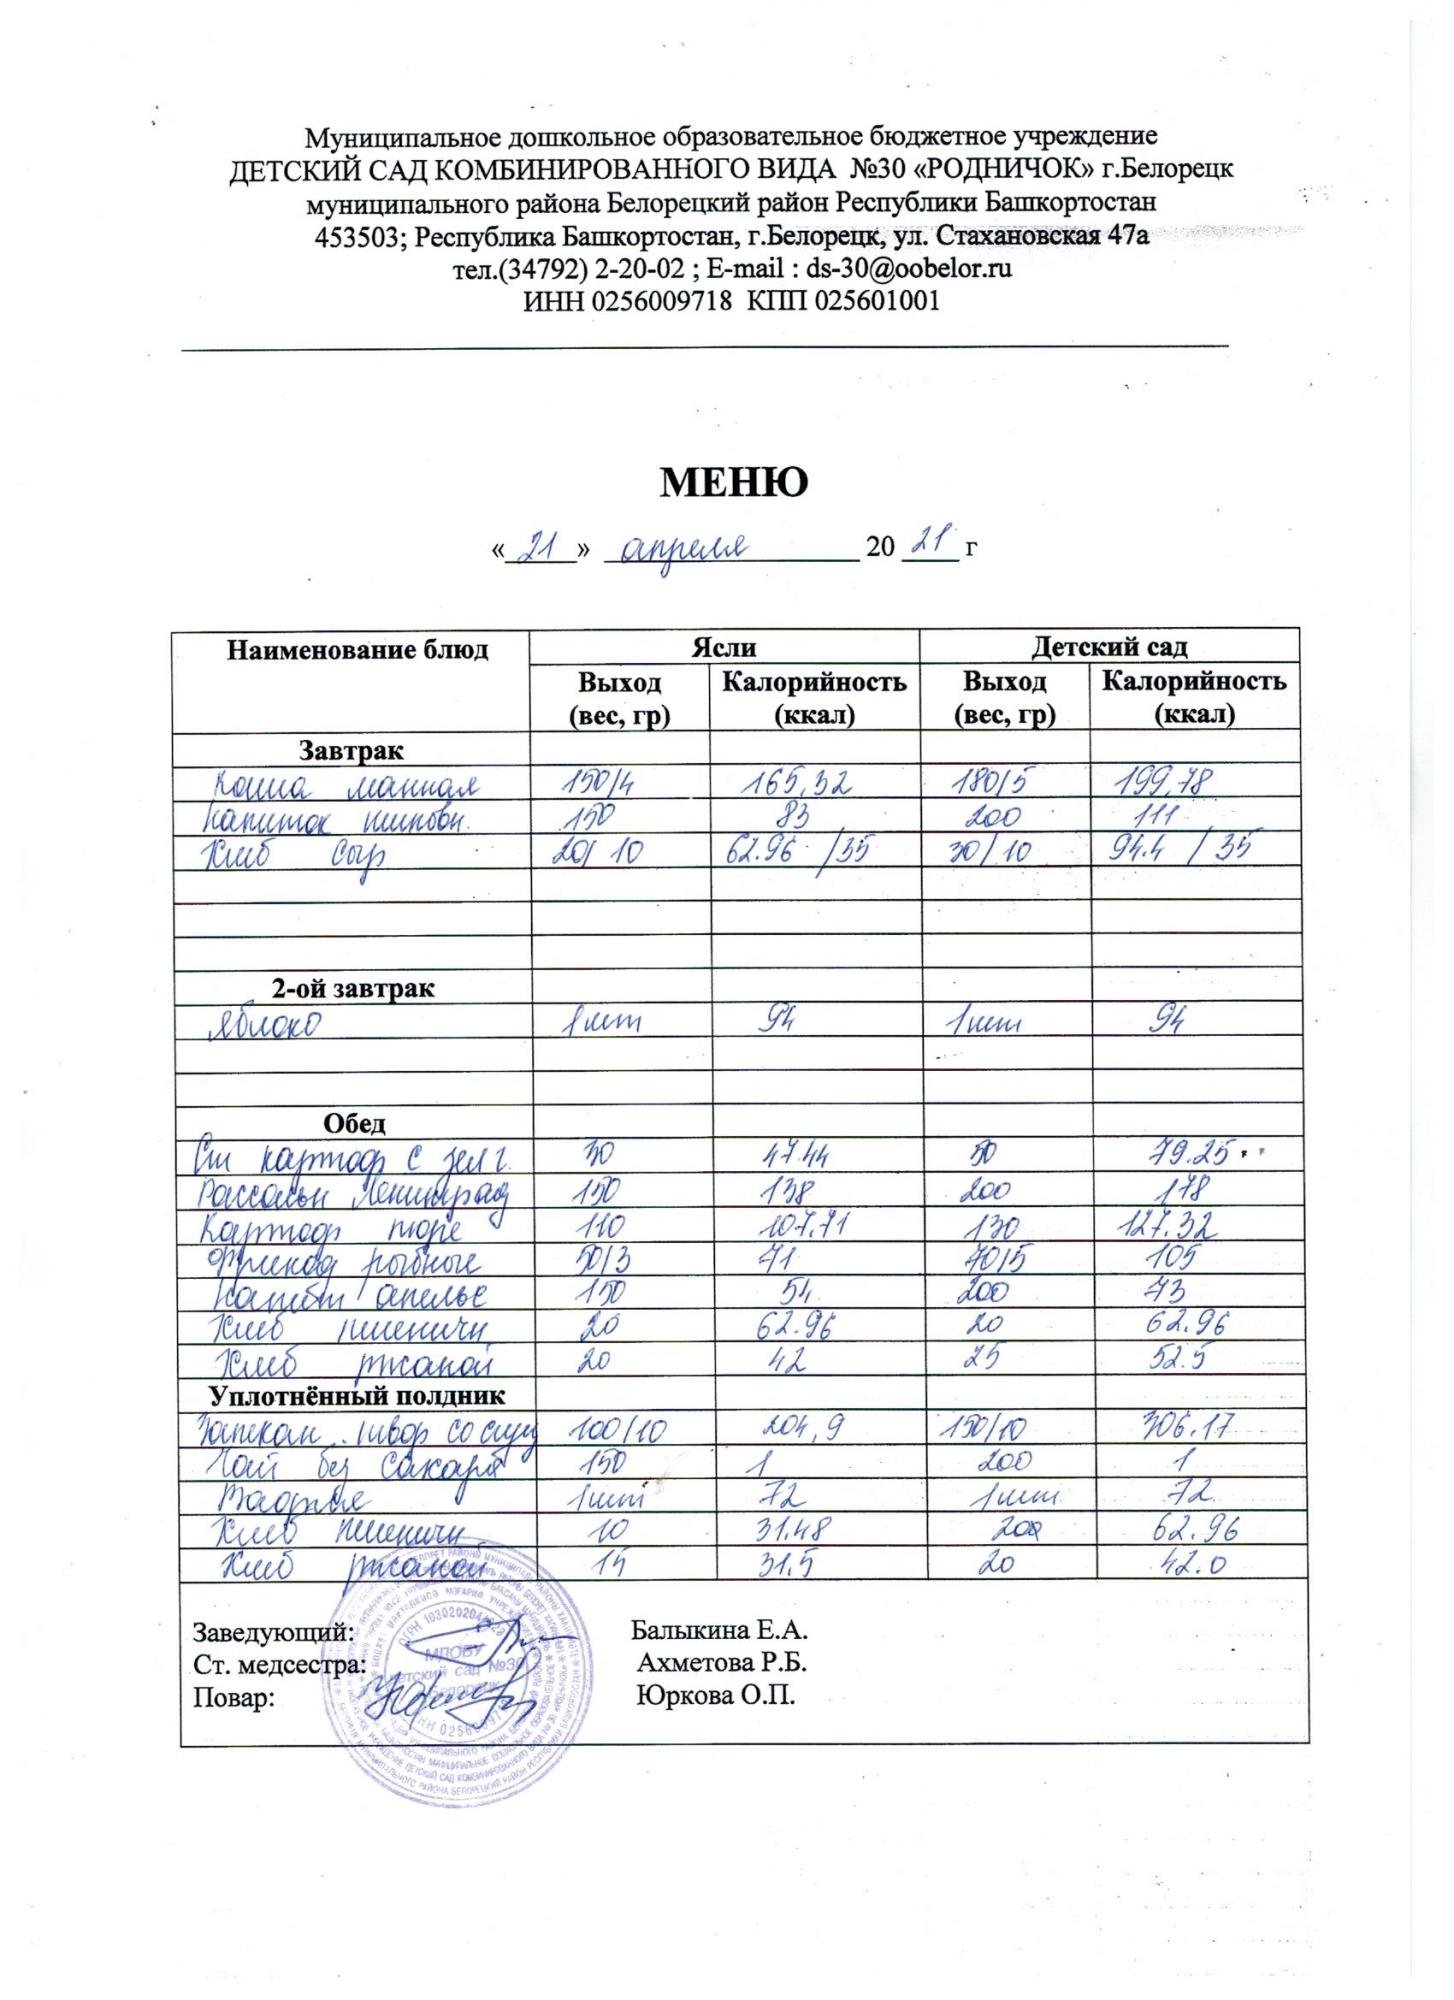 Муниципальное дошкольное образовательное бюджетное учреждение
ДЕТСКИЙ САД КОМБИНИРОВАННОГО ВИДА №30 «РОДНИЧОК» г.Белорецк
муниципального района Белорецкий район Республики Башкортостан
453503; Республика Башкортостан, г.Белорецк, ул. Стахановская 47а
тел.(34792) 2-20-02 ; E-mail : ds-30@oobelor.ru
ИНН 0256009718 КПП 025601001
МЕНЮ
« 21 » апреля 20 21 г
Наименование блюд Ясли Детский сад
Выход (вес, гр) Калорийность (ккал) Выход (вес, гр) Калорийность (ккал)
Завтрак
Каша манная 150/4 165,32 180/5 199,78
Напиток шиповн. 150 83 200 111
Хлеб сыр 20/ 10 62.96 /35 30/10 94.4 / 35
2-ой завтрак
Яблоко 1шт 94 1шт 94
Обед
Сл картоф с зел г. 30 47.44 50 79.25
Рассольн Ленинград 150 138 200 178
Картоф пюре 110 107,71 130 127.32
Фрикад рыбные 50/3 71 70/5 105
Напит апельс 150 54 200 73
Хлеб пшеничн 20 62.96 20 62.96
Хлеб ржаной 20 42 25 52.5
Уплотнённый полдник
Запекан. твор со сгущ 100/10 204,9 150/10 306.17
Чай без сахара 150 1 200 1
Вафля 1шт 72 1шт 72
Хлеб пшеничн 10 31.48 20 62.96
Хлеб ржаной 15 31,5 20 42.0
Заведующий: Балыкина Е.А.
Ст. медсестра: Ахметова Р.Б.
Повар: Юркова О.П.
МДОБУ
детский сад №30